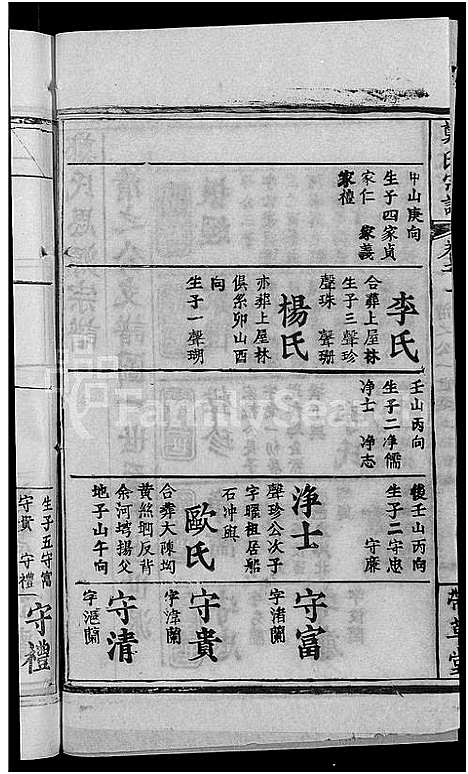 鄭氏宗譜
卷之
甲山庚向
生子四家貞
家仁 家義
家禮
李氏
合葬上屋林
生子三聲珍
聲珠 聲珊
楊氏
亦葬上屋林
俱系卯山酉
向
生子一聲瑚
壬山丙向
生子二净儒
净士 净志
後壬山丙向
生子二守忠
守廉
淨士
聲珍公次子
字
祖居船
石冲與
歐氏
合葬大陳坳
黃煞垇反背
余河塆揚父
地子山午向
守富
字渚蘭
守貴
字湋蘭
守清
字漚蘭
堂
生子五守富
守貴 守禮
守禮
FamilySearch